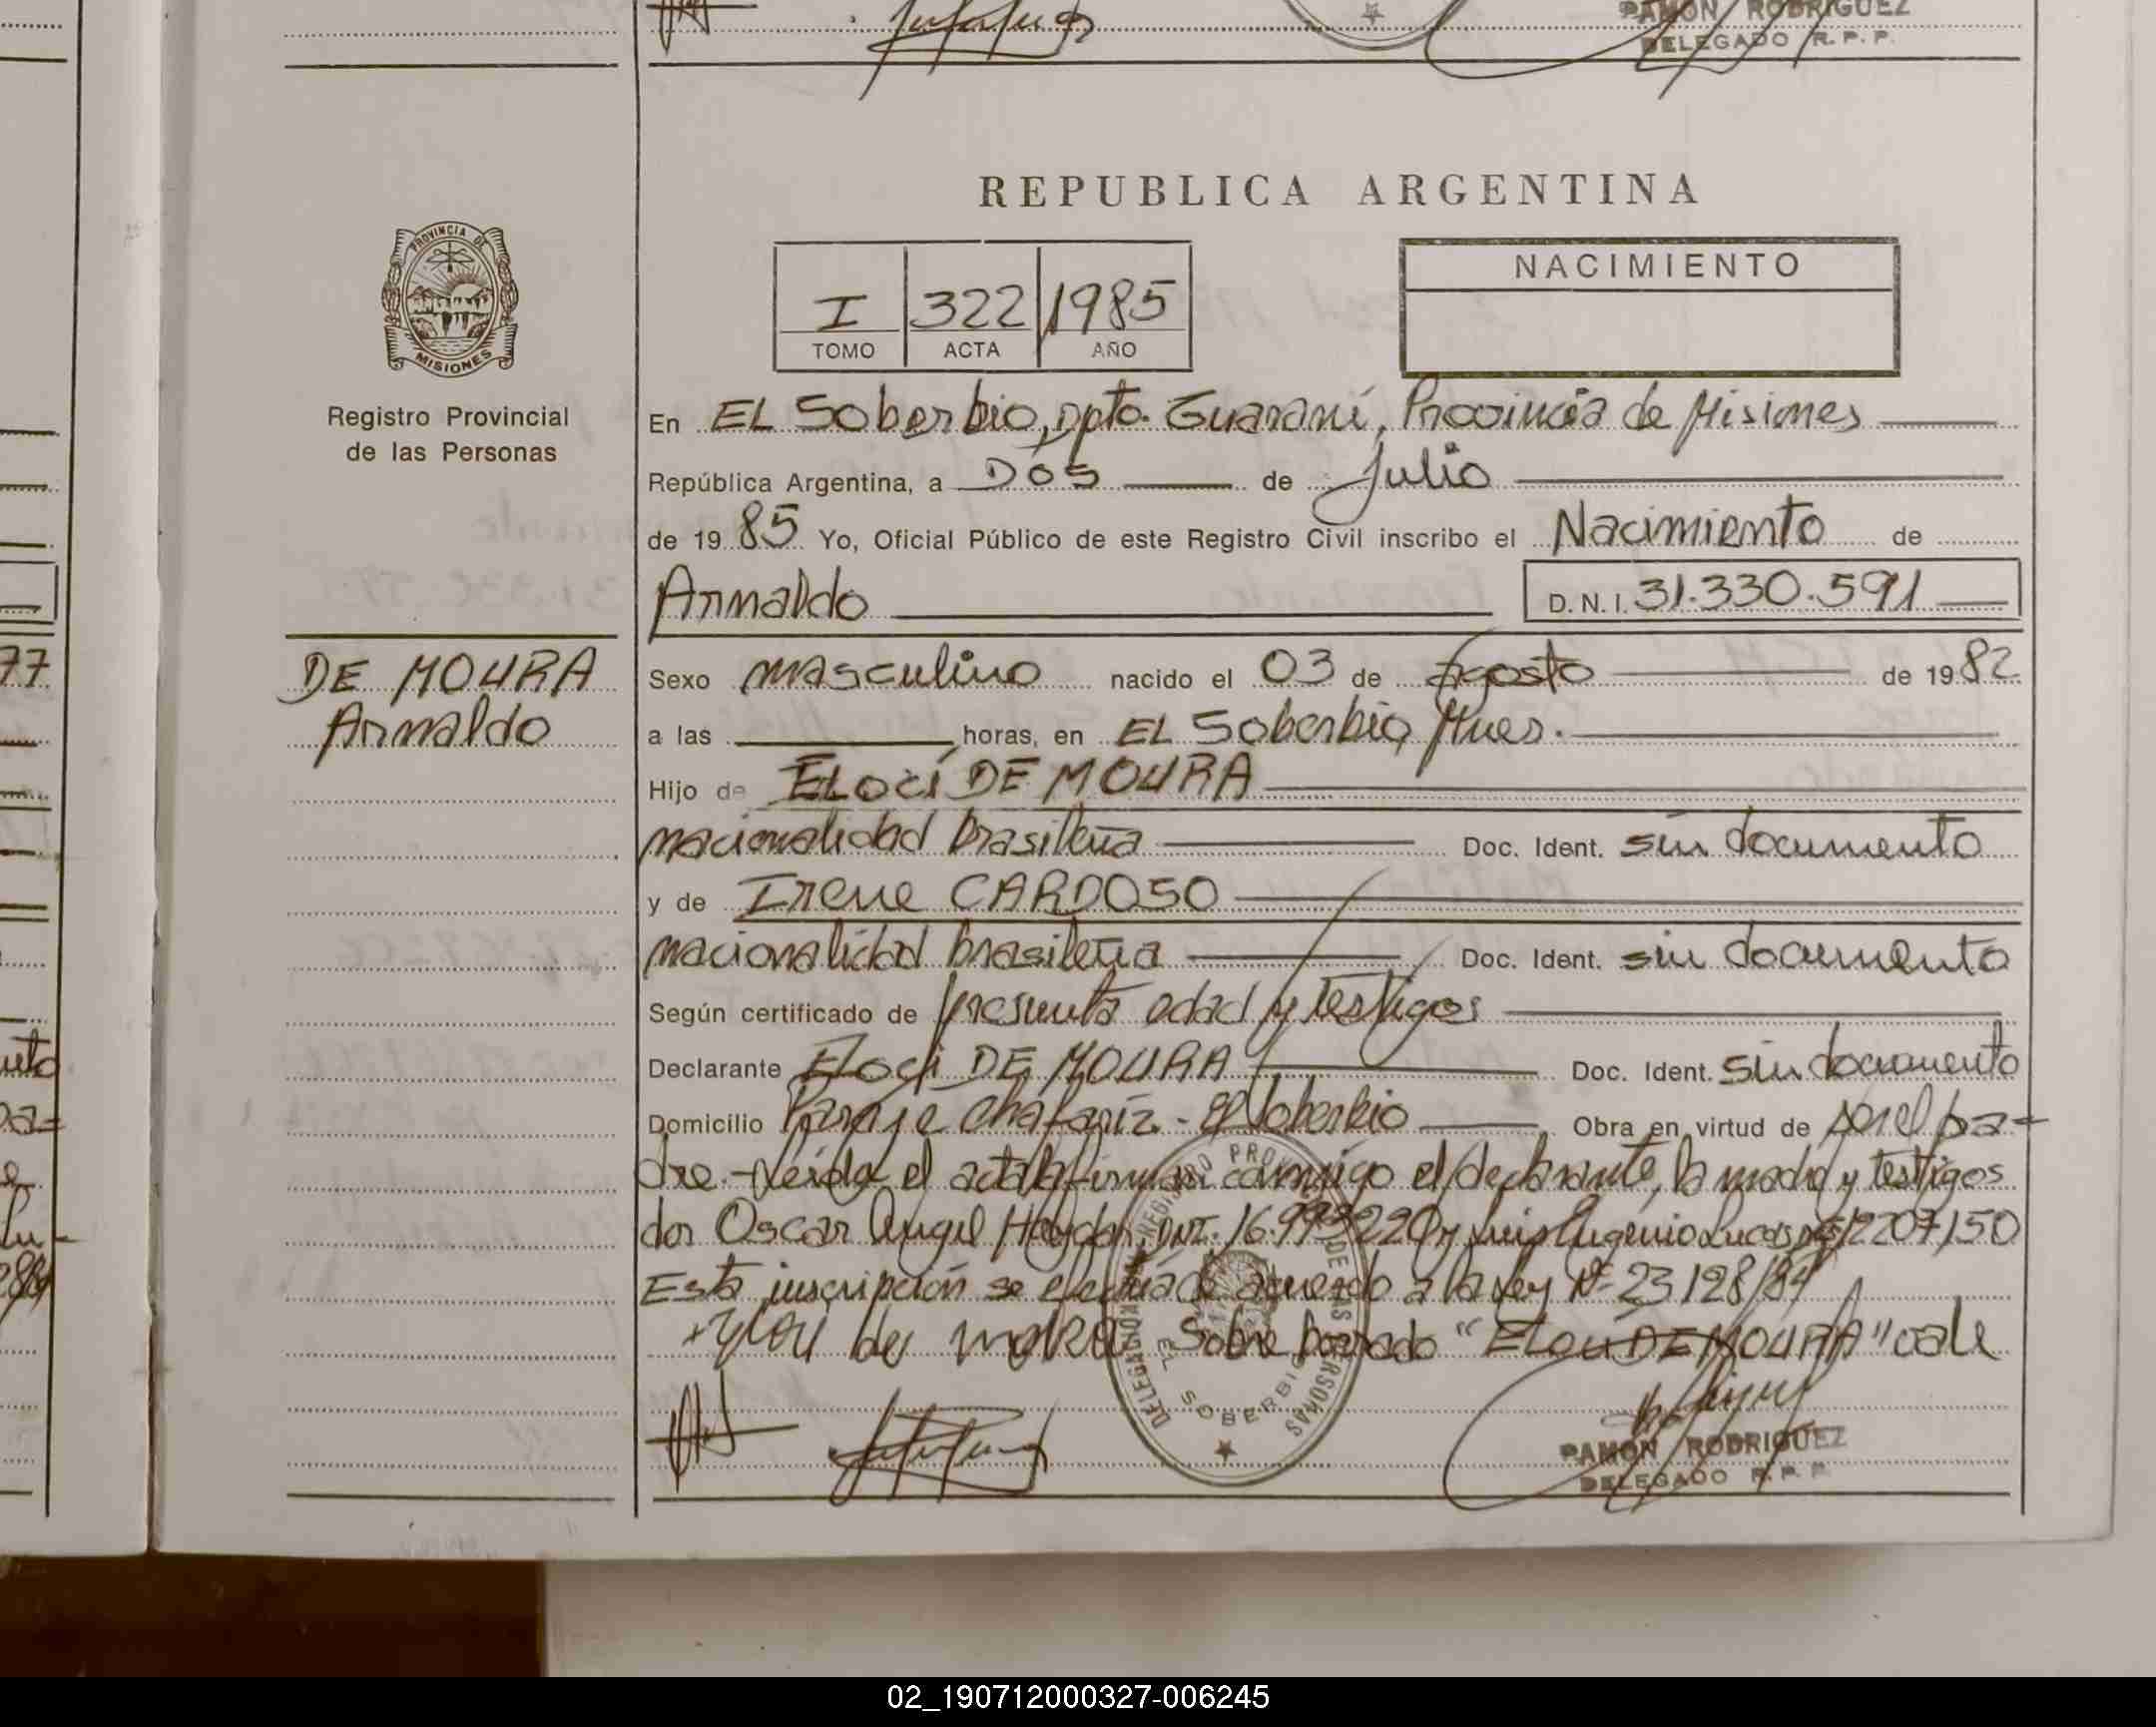 RAMON RODRIGUEZ
DELEGADO R. P. P.
REPUBLICA ARGENTINA
PROVINCIA DE
MISIONES
Registro Provincial
de las Personas
I 322 1985
TOMO ACTA AÑO
NACIMIENTO
En EL Soberbio, Dpto. Guaraní, Provincia de Misiones
República Argentina, a DOS de Julio
de 1985 Yo, Oficial Público de este Registro Civil inscribo el Nacimiento de
Arnaldo D. N. I. 31.330.591
DE MOURA
Arnaldo
Sexo masculino nacido el 03 de Agosto de 1982
a las horas, en EL Soberbio, Mnes.
Hijo de ELocí DE MOURA
nacionalidad brasileña Doc. Ident. sin documento
y de Irene CARDOSO
nacionalidad brasileña Doc. Ident. sin documento
Según certificado de presunta edad y testigos
Declarante Eloci DE MOURA Doc. Ident. sin documento
Domicilio Paraje Chafariz - El Soberbio Obra en virtud de ser el pa=
dre - Leída el acta la firman conmigo el declarante, la madre y testigos
don Oscar Angel DNI. y Luis Eugenio Lucas
Esta inscripción se efectúa de acuerdo a la Ley Nº 23128/84
de Sobre borrado "Eloci DE MOURA" vale
EL SOBERBIO
RAMON RODRIGUEZ
DELEGADO R. P. P.
02_190712000327-006245